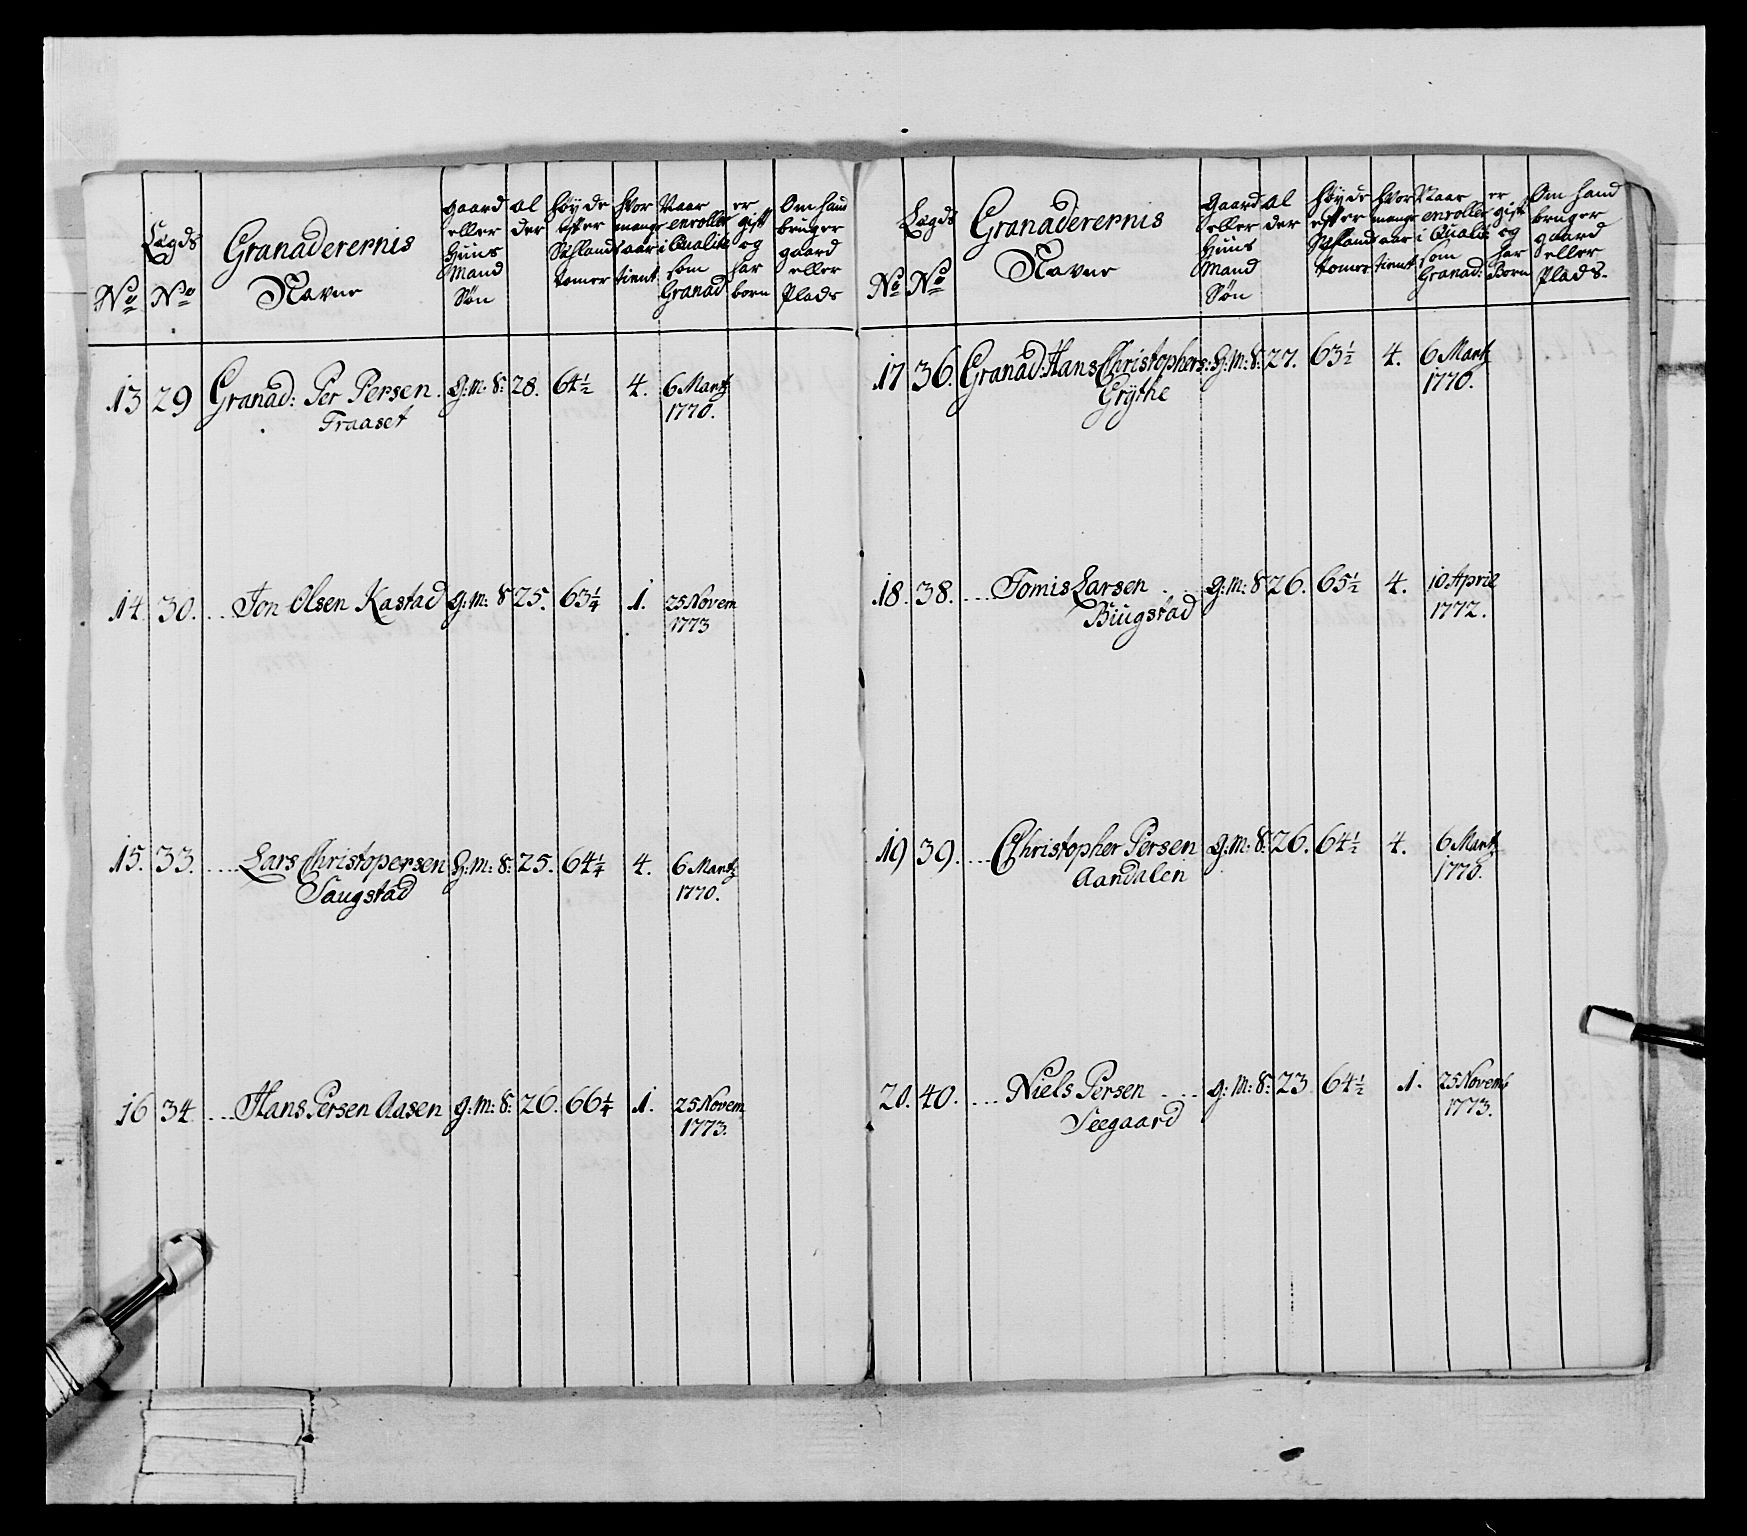 No
Lægds No
Granaderernis Navne
gaard eller Huus Mand Søn
al der
høyde efter Siellands tomer
hvor mange aar tient
Naar enrollet i Qualite som Granad
er gift og har born
Om hand bruger gaard eller Plads
13 29 Granad: Per Persen. g:m:S: 28. 64½ 4. 6 Martz
Fraaset 1770.
14. 30. Jon Olsen Kastad g:m:S 25. 63¼ 1. 25 Novem
1773
15. 33. Lars Christopersen H:m:S: 25. 64¼ 4. 6 Martz
Saugstad 1770.
16 34 Hans Persen Aasen g:m:S: 26. 66¼ 1. 25 Novem
1773.
No
Lægds No
Granaderernis Navne
gaard eller Huus Mand Søn
al der
høyde efter Siellands tomer
hvor mange aar tient
Naar enrollet i Qualite som Granad:
er gift og har Born
Om hand bruger gaard eller Plads.
17 36. Granad: Hans Christophers: H:m:S: 27. 63½ 4. 6 Martz
Grythe 1770.
18. 38. Tomis Larsen g:m:S 26. 65½ 4. 10 April
Biugstad 1772.
19 39. Christopher Persen g:m:S: 26. 64½ 4. 6 Martz
Aandalen 1770.
20. 40. Niels Persen g:m:S: 23 64½ 1. 25 Novemb
Seegaard 1773.